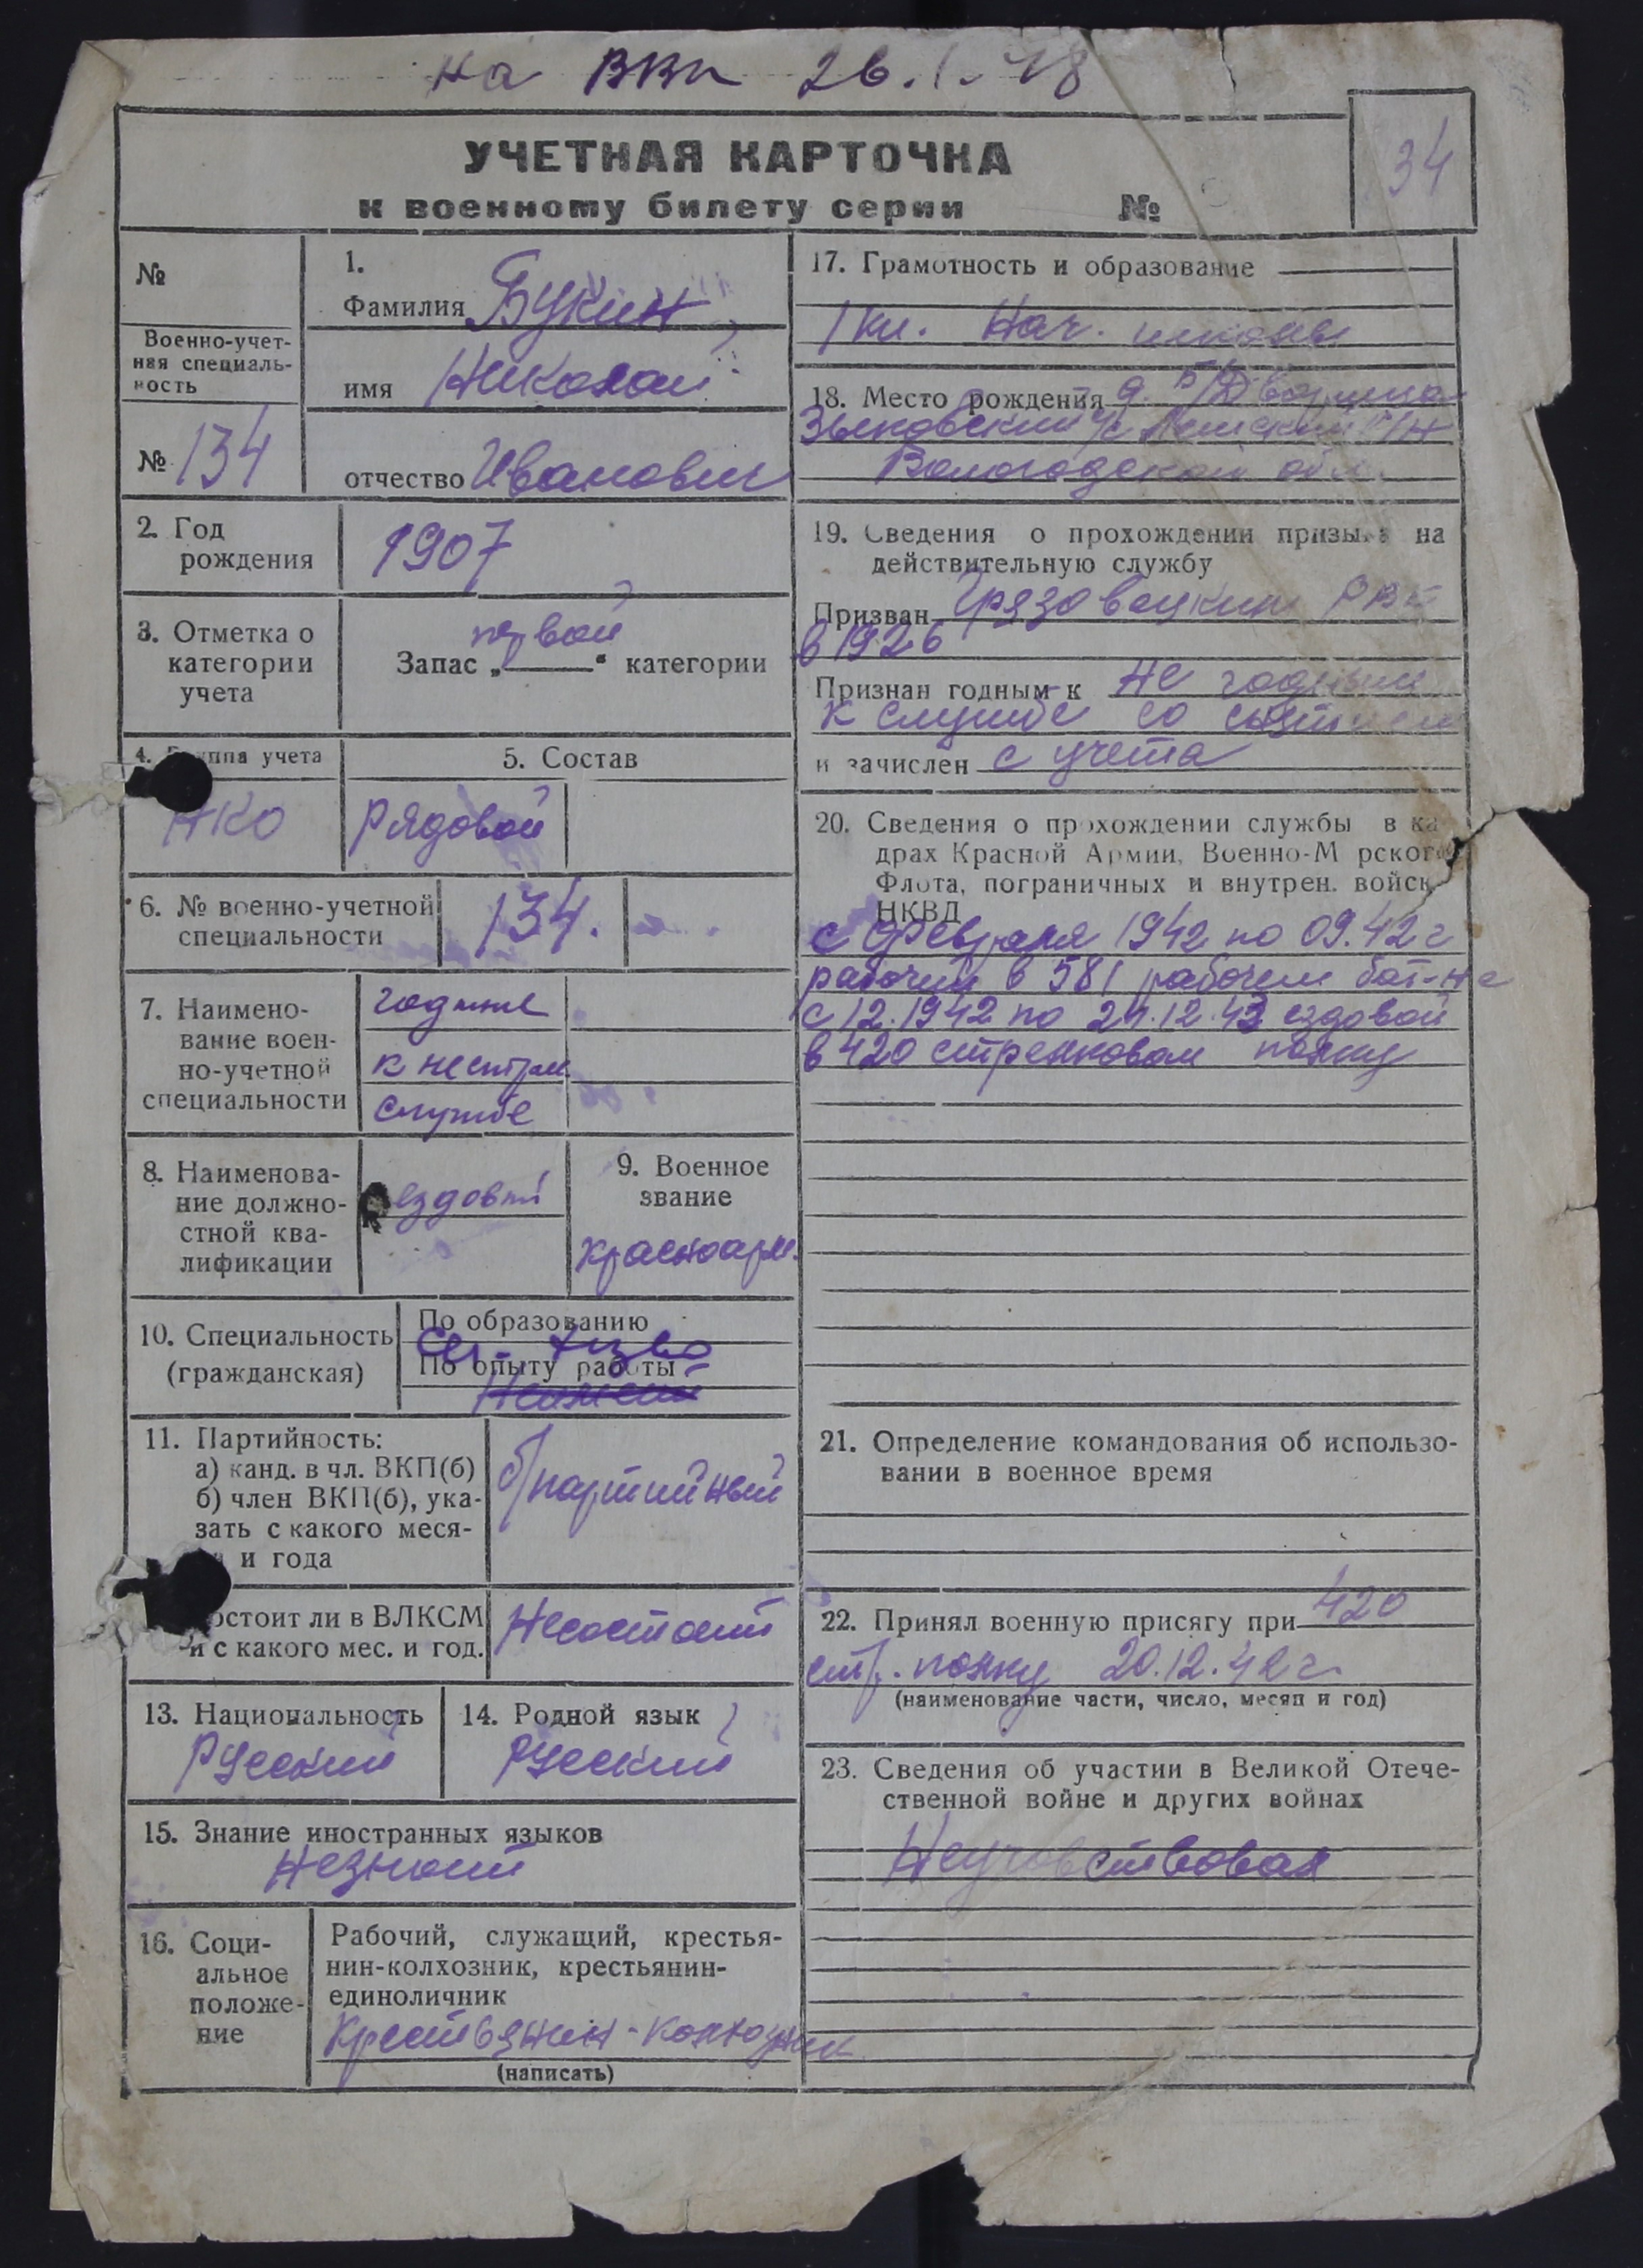 на ВВк 26.1.48
34
УЧЕТНАЯ КАРТОЧКА
к военному билету серии №
№
Военно-учет-
ная специаль-
ность
№ 134
1.
Фамилия Букин
имя Николай
отчество Иванович
2. Год
рождения
1907
3. Отметка о
категории
учета
первой
Запас „ “ категории
4. Группа учета
НКО
5. Состав
Рядовой
6. № военно-учетной
специальности
134.
7. Наимено-
вание воен-
но-учетной
специальности
годные
к нестрое
службе
8. Наименова-
ние должно-
стной ква-
лификации
ездовой
9. Военное
звание
красноарм.
10. Специальность
(гражданская)
По образованию
По опыту работы
11. Партийность:
а) канд. в чл. ВКП(б)
б) член ВКП(б), ука-
зать с какого меся-
и года
б/партийный
остоит ли в ВЛКСМ
и с какого мес. и год.
Несостоит
13. Национальность
Русский
14. Родной язык
Русский
15. Знание иностранных языков
Незнает
16. Соци-
альное
положе-
ние
Рабочий, служащий, крестья-
нин-колхозник, крестьянин-
единоличник
Крестьянин-колхозник
(написать)
17. Грамотность и образование
1 кл. Нач. школы
18. Место рождения д.
Зыковский с/с Лежский р/н
Вологодской обл.
19. Сведения о прохождении призыва на
действительную службу
Призван Грязовецким РВК
в 1926
Признан годным к Не годным
к службе со снятием
и зачислен с учета
20. Сведения о прохождении службы в ка
драх Красной Армии, Военно-М рского
Флота, пограничных и внутрен. войск
НКВД
с февраля 1942 по 09.42 г
рабочий в 581 рабочем бат-не
с 12.1942 по 24.12.43 ездовой
в 420 стрелковом полку
21. Определение командования об использо-
вании в военное время
22. Принял военную присягу при 420
стр. полку 20.12.42 г.
(наименование части, число, месяц и год)
23. Сведения об участии в Великой Отече-
ственной войне и других войнах
Неучавствовал